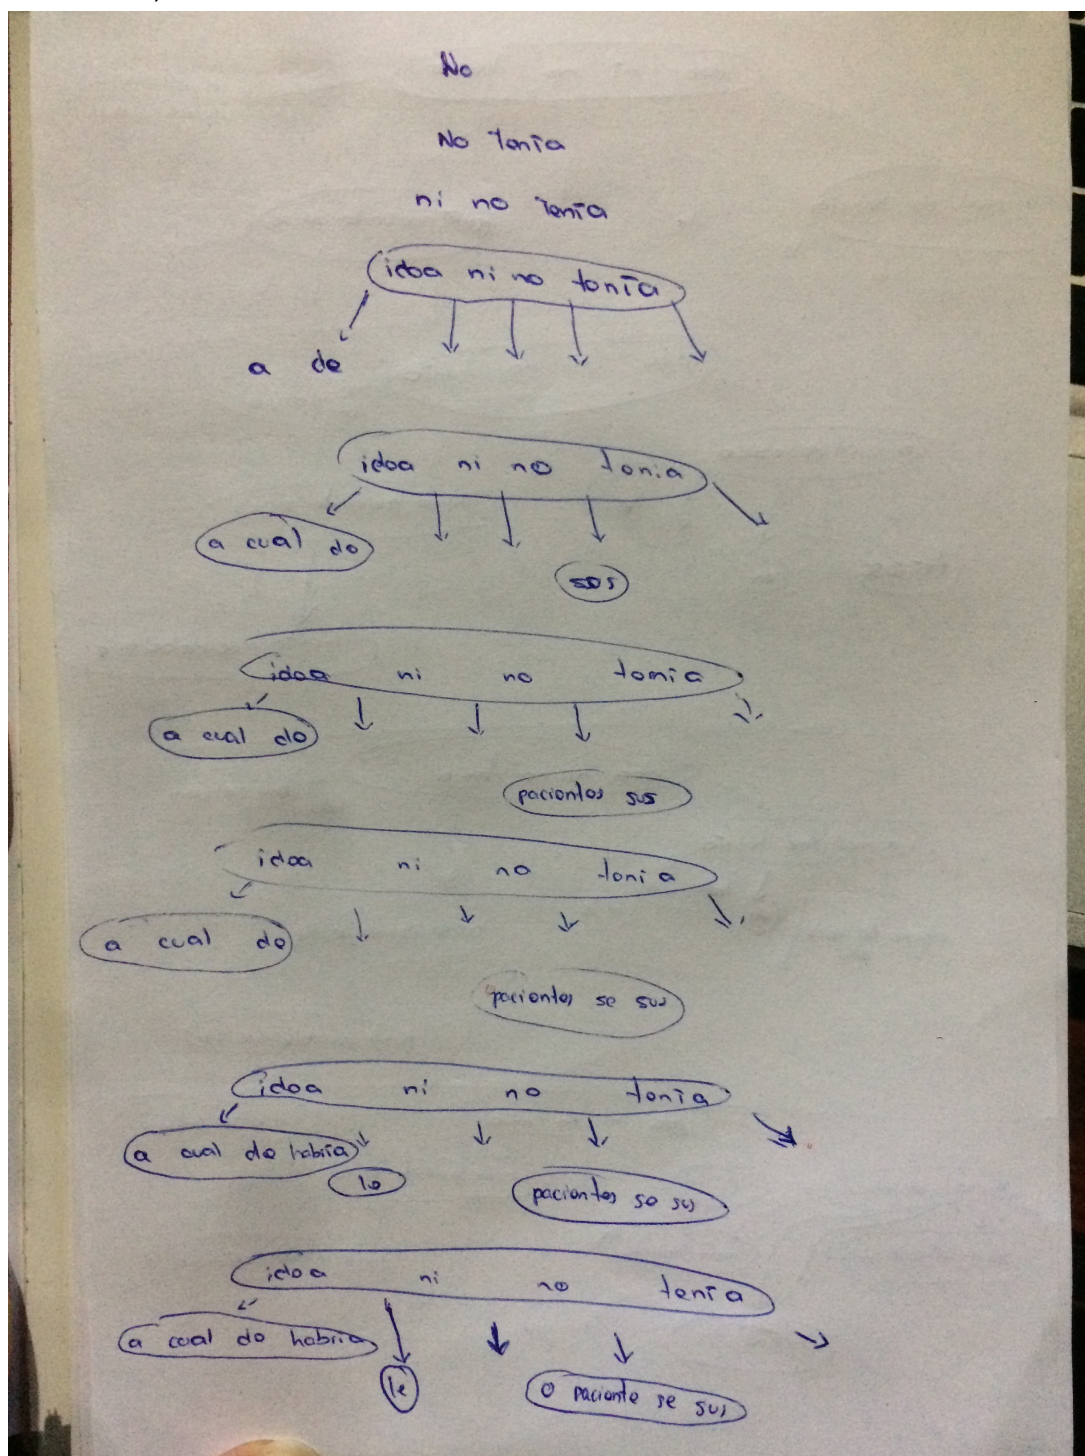 No
No tenía
ni no tenía
idea ni no tenía
a de
idea ni no tenia
a cual de
sus
idea ni no tenía
a cual de
pacientes sus
idea ni no tenia
a cual de
pacientes se sus
idea ni no tenía
a cual de habría
le
pacientes se sus
idea ni no tenía
a cual de habria
le
o paciente se sus